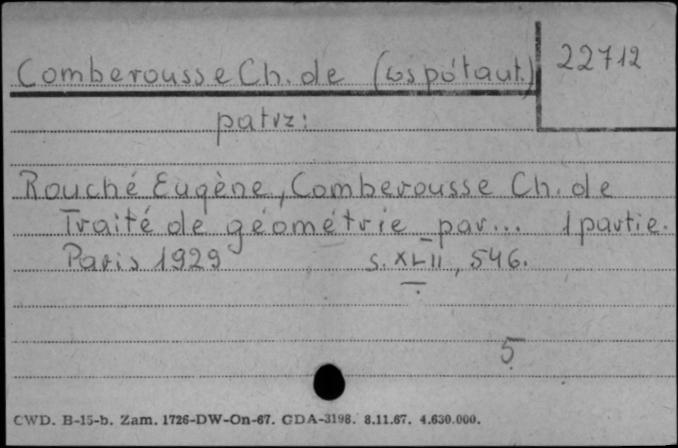 Comberousse Ch. de (współaut.)
22712
patrz:
Rouché Eugène, Comberousse Ch. de
Traité de géométrie par... 1 partie.
Paris 1929 s. XLII, 546.
5
CWD. B-15-b. Zam. 1726-DW-On-67. CDA-3198. 8.11.67. 4.630.000.